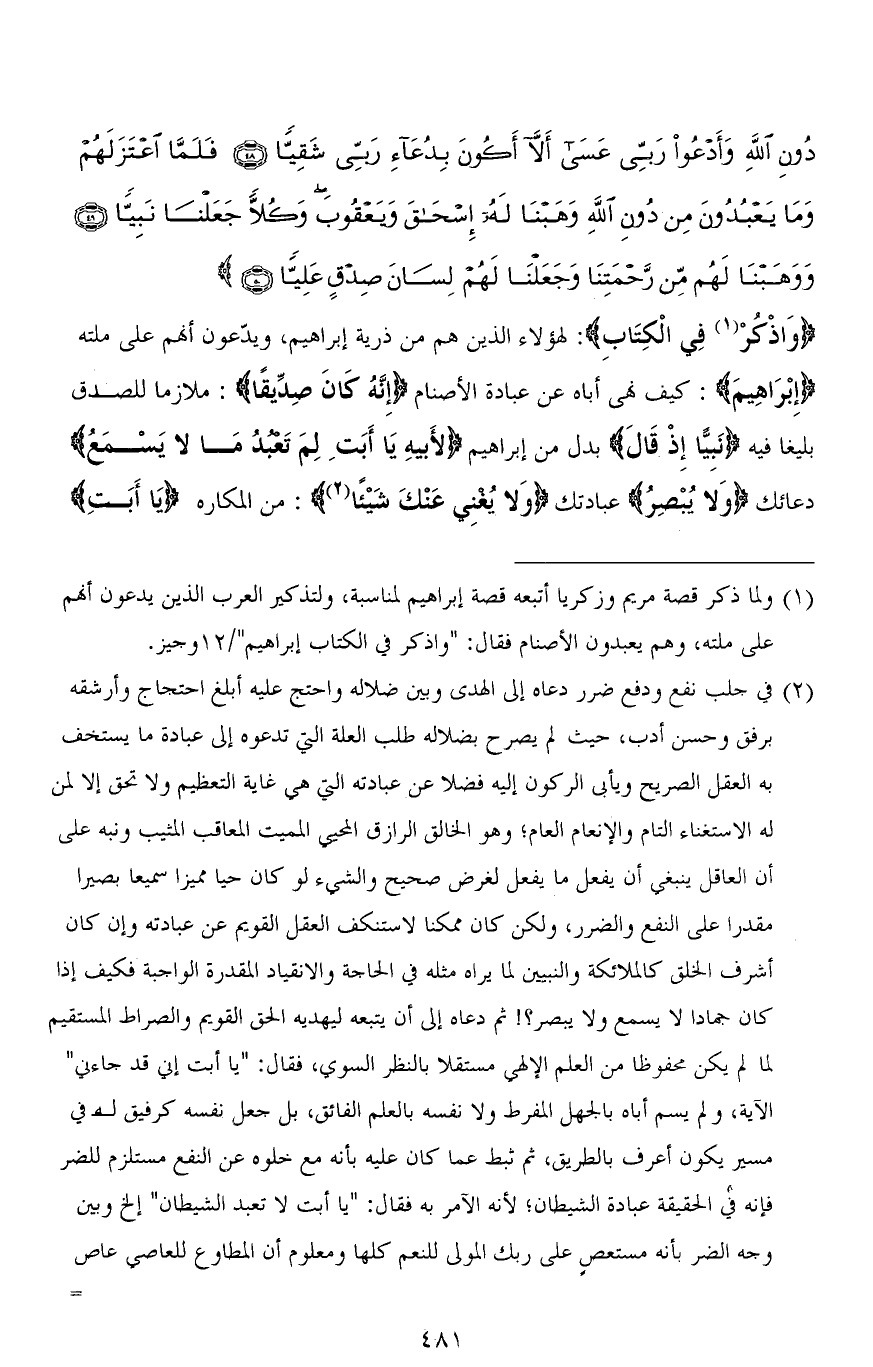 دُونِ ٱللَّهِ وَأَدْعُوا۟ رَبِّى عَسَىٰٓ أَلَّآ أَكُونَ بِدُعَآءِ رَبِّى شَقِيًّا ﴿٤٨﴾ فَلَمَّا ٱعْتَزَلَهُمْ
وَمَا يَعْبُدُونَ مِن دُونِ ٱللَّهِ وَهَبْنَا لَهُۥٓ إِسْحَـٰقَ وَيَعْقُوبَ ۖ وَكُلًّا جَعَلْنَـا نَبِيًّا ﴿٤٩﴾
وَوَهَبْنَا لَهُم مِّن رَّحْمَتِنَا وَجَعَلْنَـا لَهُمْ لِسَـانَ صِدْقٍ عَلِيًّا ﴿٥٠﴾ ﴾
﴿وَاذْكُرْ(١) فِي الْكِتَابِ﴾: لهؤلاء الذين هم من ذرية إبراهيم، ويدّعون أنهم على ملته
﴿إِبْرَاهِيمَ﴾ : كيف نهى أباه عن عبادة الأصنام ﴿إِنَّهُ كَانَ صِدِّيقًا﴾ : ملازما للصـدق
بليغا فيه ﴿نَبِيًّا إِذْ قَالَ﴾ بدل من إبراهيم ﴿لأَبِيهِ يَا أَبَتِ لِمَ تَعْبُدُ مَـا لا يَسْـمَعُ﴾
دعائك ﴿وَلا يُبْصِرُ﴾ عبادتك ﴿وَلا يُغْنِي عَنْكَ شَيْئًا(٢)﴾ : من المكاره ﴿يَا أَبَـتِ﴾
(١) ولما ذكر قصة مريم وزكريا أتبعه قصة إبراهيم لمناسبة، ولتذكير العرب الذين يدعون أنهم
على ملته، وهم يعبدون الأصنام فقال: "واذكر في الكتاب إبراهيم"/١٢وجيز.
(٢) في جلب نفع ودفع ضرر دعاه إلى الهدى وبين ضلاله واحتج عليه أبلغ احتجاج وأرشقه
برفق وحسن أدب، حيث لم يصرح بضلاله طلب العلة التي تدعوه إلى عبادة ما يستخف
به العقل الصريح ويأبى الركون إليه فضلا عن عبادته التي هي غاية التعظيم ولا تحق إلا لمن
له الاستغناء التام والإنعام العام؛ وهو الخالق الرازق المحيي المميت المعاقب المثيب ونبه على
أن العاقل ينبغي أن يفعل ما يفعل لغرض صحيح والشيء لو كان حيا مميزا سميعا بصيرا
مقدرا على النفع والضرر، ولكن كان ممكنا لاستنكف العقل القويم عن عبادته وإن كان
أشرف الخلق كالملائكة والنبيين لما يراه مثله في الحاجة والانقياد المقدرة الواجبة فكيف إذا
كان جمادا لا يسمع ولا يبصر؟! ثم دعاه إلى أن يتبعه ليهديه الحق القويم والصراط المستقيم
لما لم يكن محفوظا من العلم الإلهي مستقلا بالنظر السوي، فقال: "يا أبت إني قد جاءني"
الآية، ولم يسم أباه بالجهل المفرط ولا نفسه بالعلم الفائق، بل جعل نفسه كرفيق لـه في
مسير يكون أعرف بالطريق، ثم ثبط عما كان عليه بأنه مع خلوه عن النفع مستلزم للضر
فإنه في الحقيقة عبادة الشيطان؛ لأنه الآمر به فقال: "يا أبت لا تعبد الشيطان" إلخ وبين
وجه الضر بأنه مستعصٍ على ربك المولى للنعم كلها ومعلوم أن المطاوع للعاصي عاص
=
٤٨١